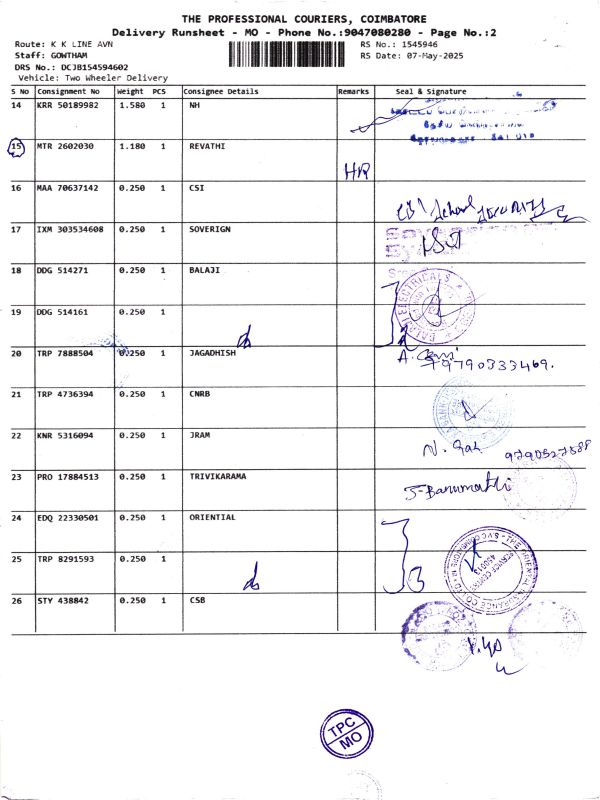 THE PROFESSIONAL COURIERS, COIMBATORE
Delivery Runsheet - MO - Phone No.:9047080280 - Page No.:2
Route: K K LINE AVN
RS No.: 1545946
Staff: GOWTHAM
RS Date: 07-May-2025
DRS No.: DCJB154594602
Vehicle: Two Wheeler Delivery
S No Consignment No Weight PCS Consignee Details Remarks Seal & Signature
14 KRR 50189982 1.580 1 NH
15 MTR 2602030 1.180 1 REVATHI
HR
16 MAA 70637142 0.250 1 CSI
School
17 IXM 303534608 0.250 1 SOVERIGN
18 DDG 514271 0.250 1 BALAJI
19 DDG 514161 0.250 1
20 TRP 7888504 0.250 1 JAGADHISH
9790333469.
21 TRP 4736394 0.250 1 CNRB
22 KNR 5316094 0.250 1 JRAM
9790527588
23 PRO 17884513 0.250 1 TRIVIKARAMA
J-Banumathi
24 EDQ 22330501 0.250 1 ORIENTIAL
25 TRP 8291593 0.250 1
26 STY 438842 0.250 1 CSB
TPC
MO